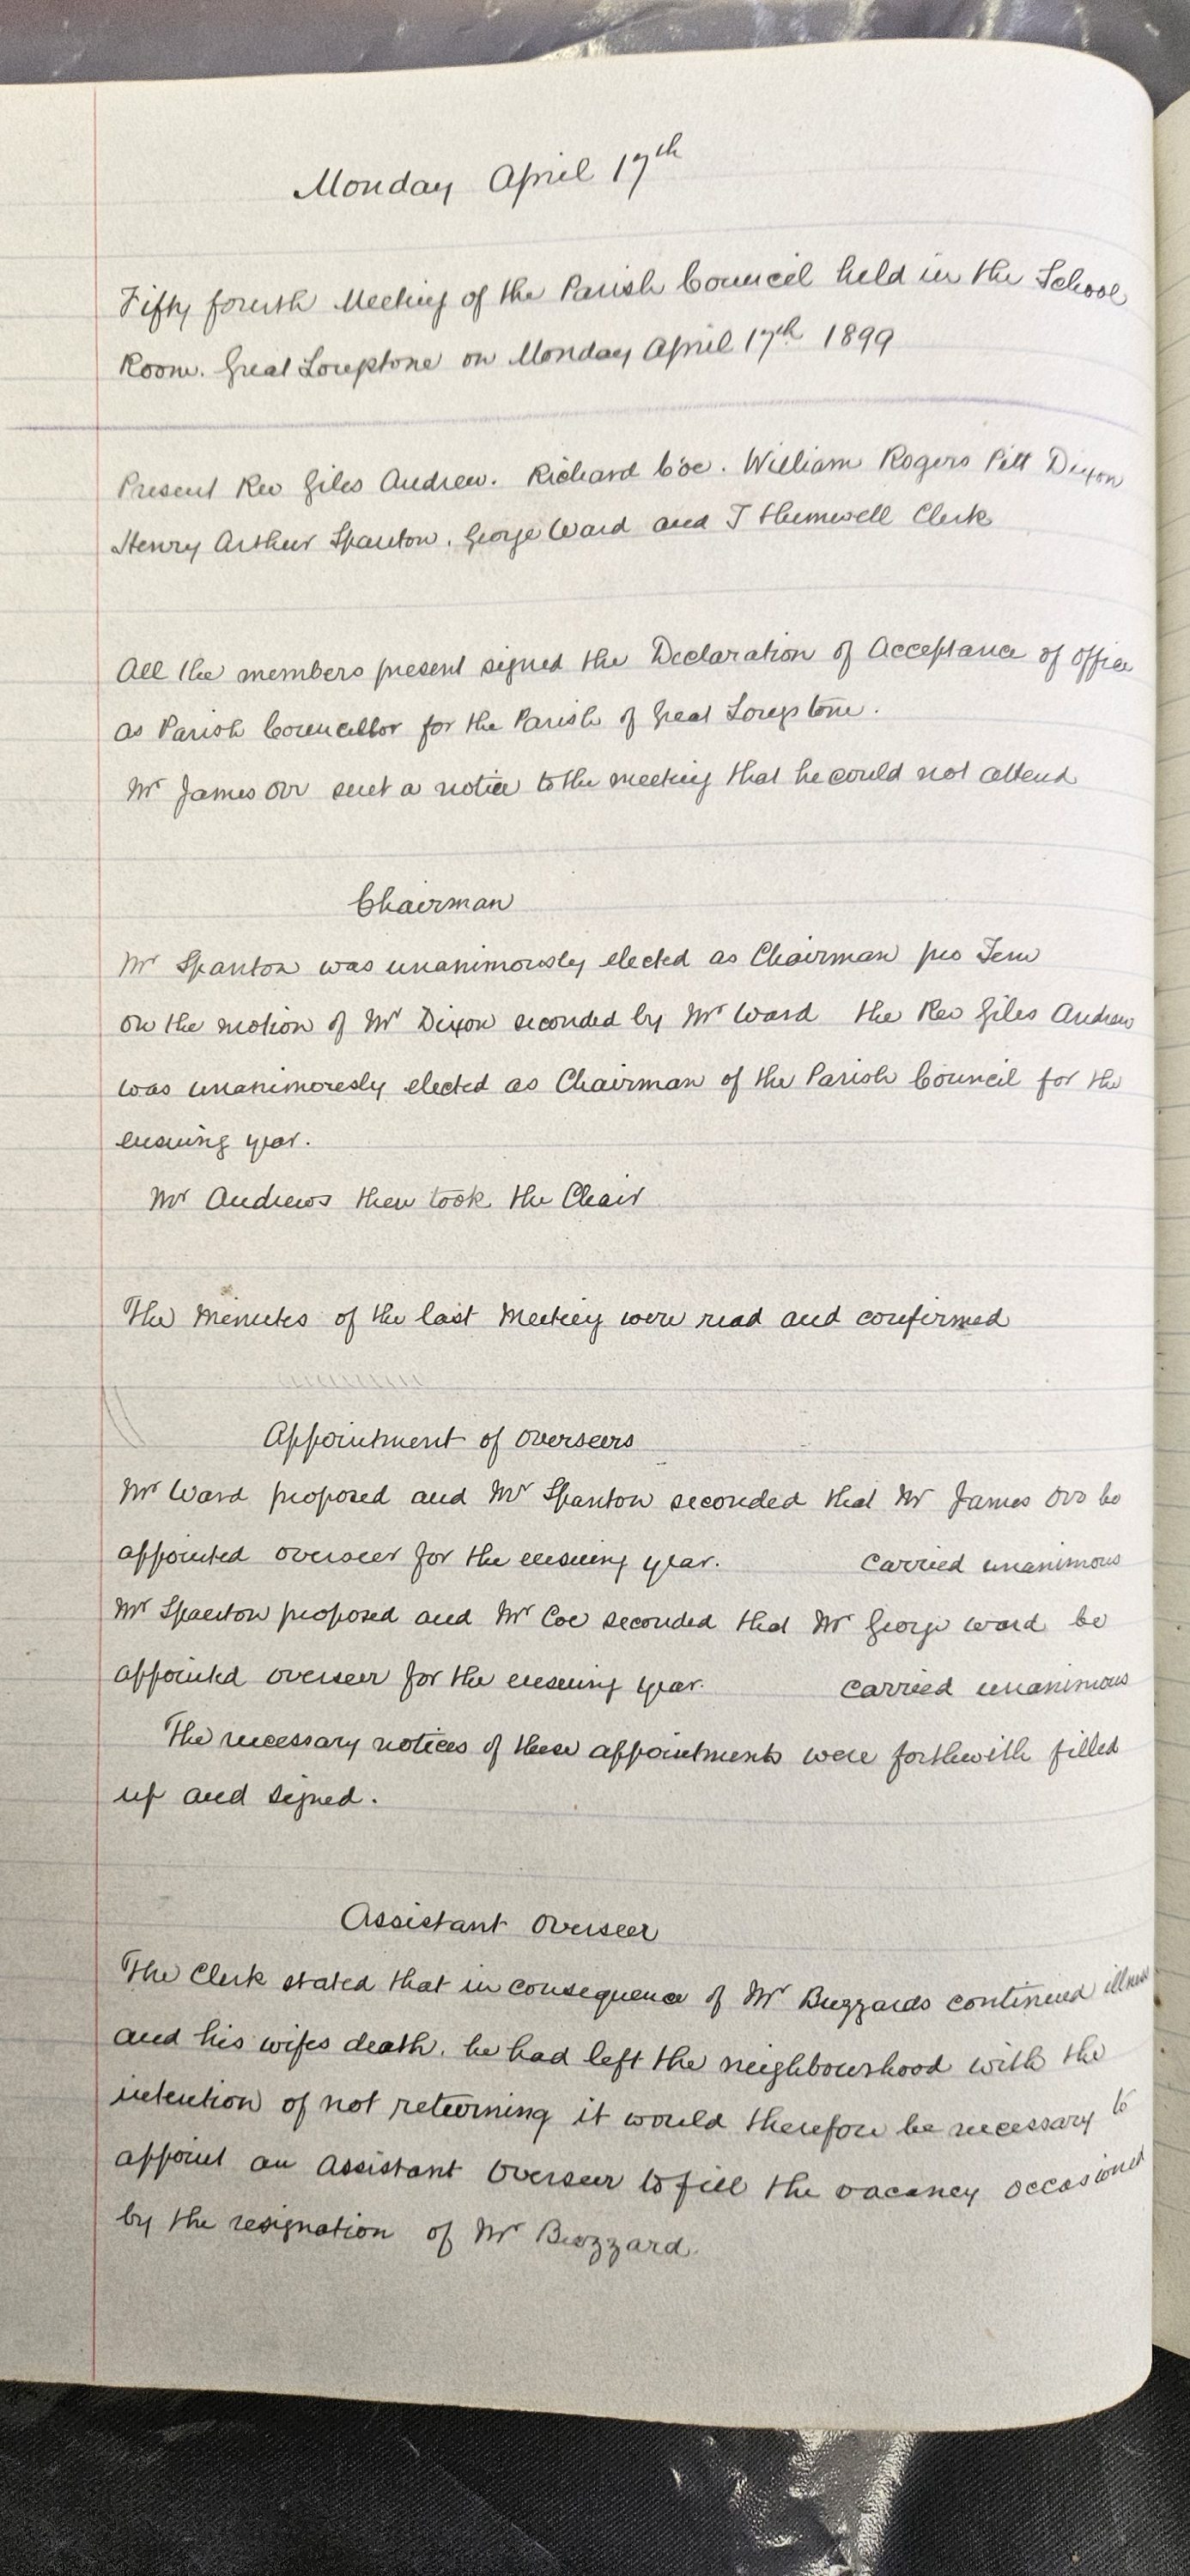 Monday April 17th
Fifty fourth Meeting of the Parish Council held in the School
Room. Great Longstone on Monday April 17th 1899
Present Rev Giles Andrew. Richard Coe. William Rogers Pitt Dixon
Henry Arthur Spanton. George Ward and J Clerk
All the members present signed the Declaration of Acceptance of office
as Parish Councillor for the Parish of Great Longstone.
Mr James Orr sent a notice to the meeting that he could not attend
Chairman
Mr Spanton was unanimously elected as Chairman pro Tem
on the motion of Mr Dixon seconded by Mr Ward the Rev Giles Andrew
was unanimously elected as Chairman of the Parish Council for the
ensuing year.
Mr Andrews then took the Chair
The Minutes of the last Meeting were read and confirmed
Appointment of overseers
Mr Ward proposed and Mr Spanton seconded that Mr James Orr be
appointed overseer for the ensuing year. Carried unanimous
Mr Spanton proposed and Mr Coe seconded that Mr George Ward be
appointed overseer for the ensuing year. Carried unanimous
The necessary notices of these appointments were forthwith filled
up and signed.
Assistant Overseer
The Clerk stated that in consequence of Mr Buzzards continued illness
and his wifes death. he had left the neighbourhood with the
intention of not returning it would therefore be necessary to
appoint an Assistant Overseer to fill the vacancy occasioned
by the resignation of Mr Buzzard.